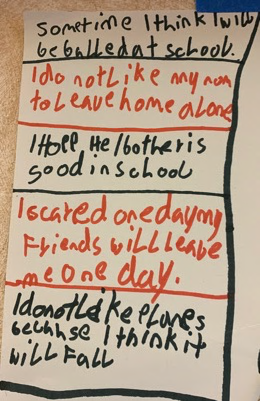 Sometime I think I will
be balled at school.
I do not like my mom
to leave home alone
I Hope He/bother is
good in school
I scared one day my
Friends will leave
me one day.
I do not Like planes
becuhse I think it
will Fall